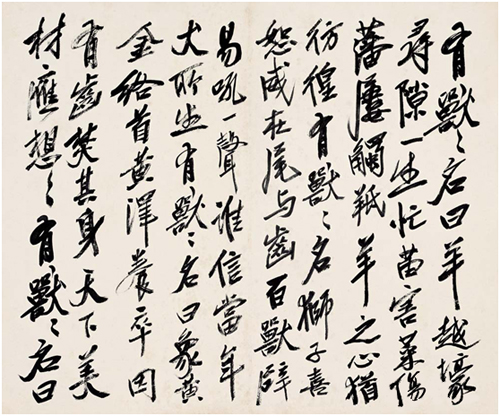 有獸〻名曰羊越壕
尋隙一生忙苗害菜傷
藩屢觸羝羊之心猶
彷徨有獸〻名獅子喜
怒威在尾与齒百獸辟
易吼一聲誰信當年
犬所生有獸〻名曰象黃
金絡首黃澤養卒因
有齒焚其身天下美
材應想〻有獸〻名曰